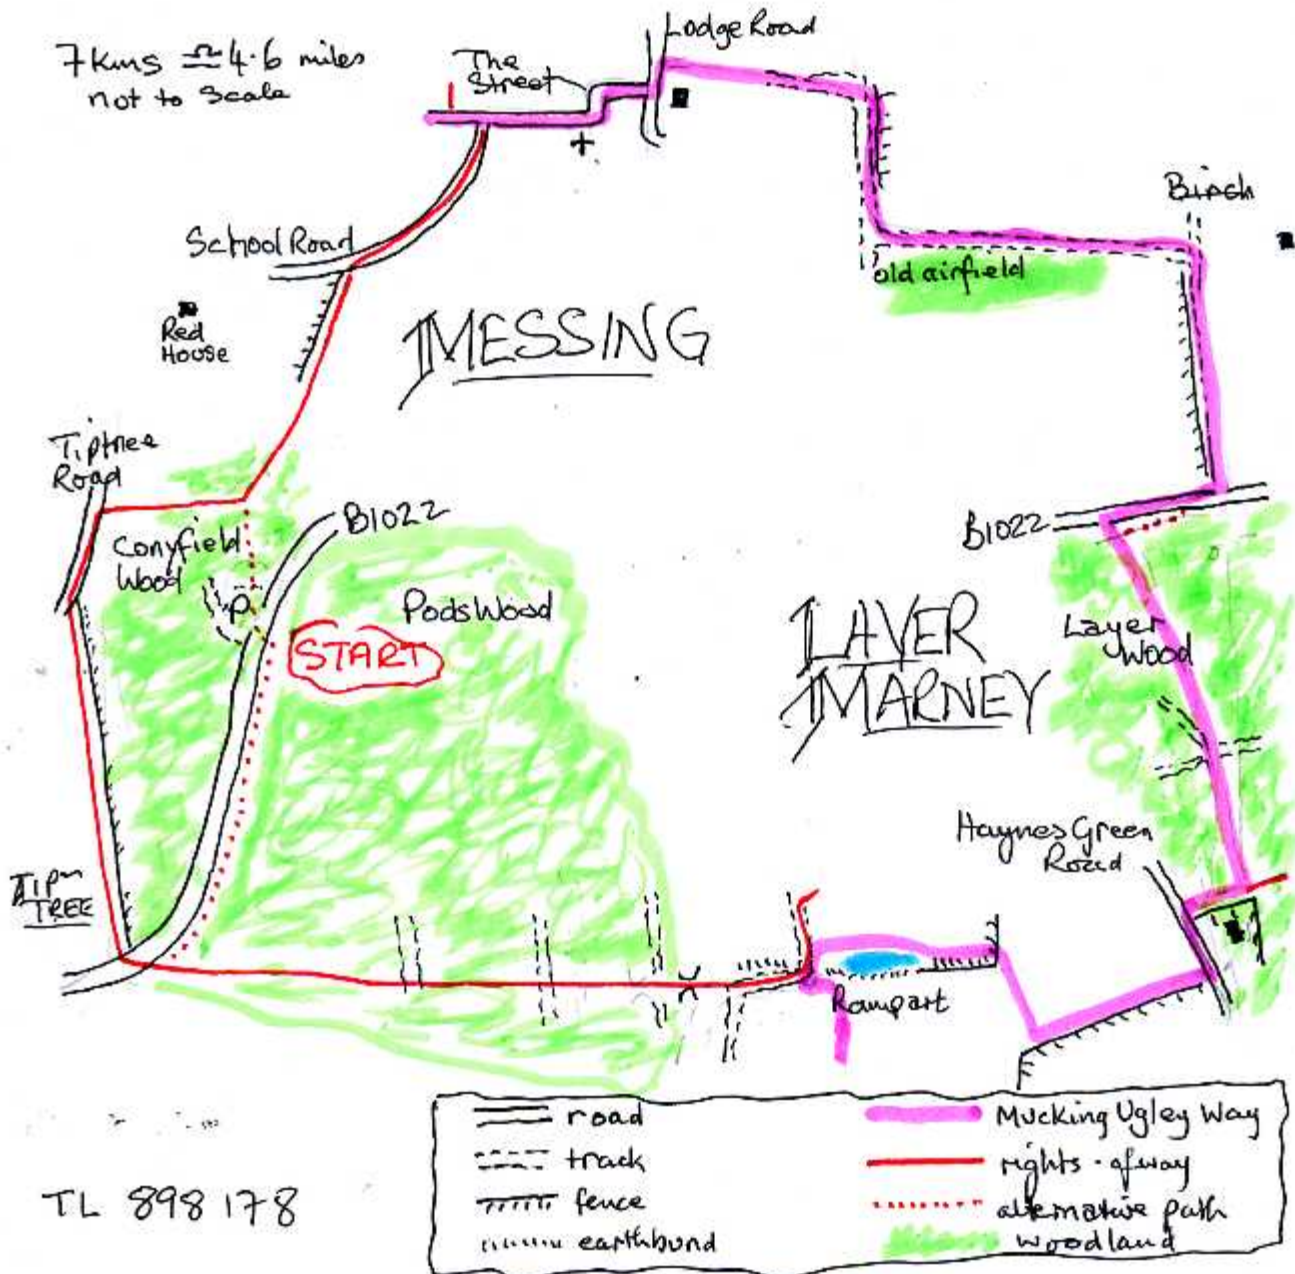 7kms ≏ 4.6 miles
not to scale
The
Street
Lodge Road
Birch
School Road
old airfield
Red
House
MESSING
Tiptree
Road
B1022
B1022
Conyfield
Wood
P
Pods Wood
START
LAYER
MARNEY
Layer
Wood
Haynes Green
Road
TIP
TREE
Rampart
road
track
fence
earthbund
Mucking Ugley Way
rights-of way
alternative path
woodland
TL 898 178